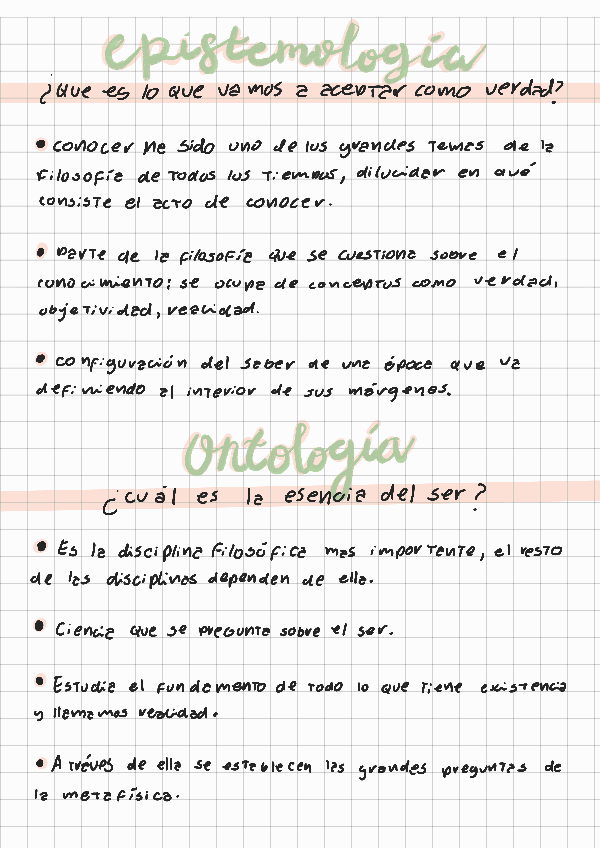 epistemología
¿Que es lo que vamos a aceptar como verdad?
• conocer he sido uno de los grandes temas de la
filosofía de todos los tiempos, dilucidar en qué
consiste el acto de conocer.
• parte de la filosofía que se cuestiona sobre el
conocimiento; se ocupa de conceptos como verdad,
objetividad, realidad.
• configuración del saber de una época que va
definiendo al interior de sus márgenes.
Ontología
¿cuál es la esencia del ser?
• Es la disciplina filosófica mas importente, el resto
de las disciplinas dependen de ella.
• Ciencia que se pregunta sobre el ser.
• Estudia el fundamento de todo lo que tiene existencia
y llamamos realidad.
• A tréves de ella se establecen las grandes preguntas de
la metafísica.